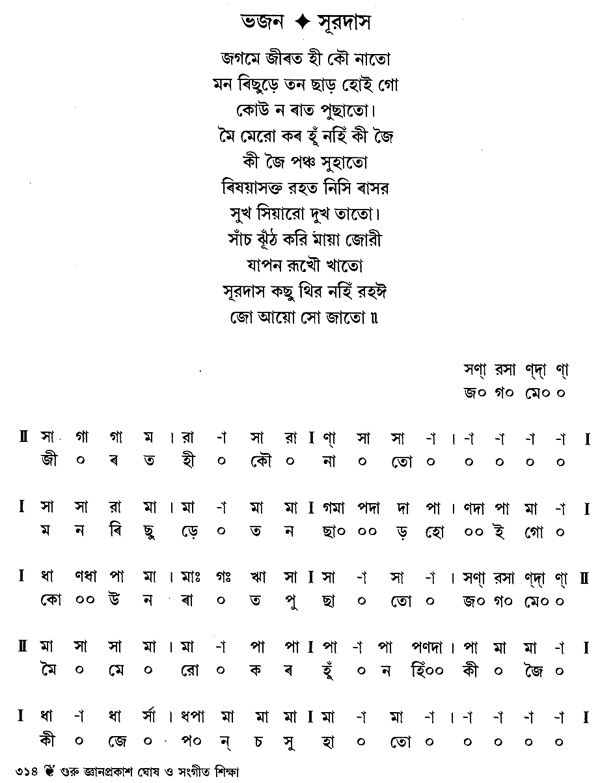 ভজন ✦ সূরদাস
জগমে জীৱত হী কৌ নাতো
মন ৱিছুড়ে তন ছাড় হোই গো
কোউ ন ৱাত পুছাতো।
মৈ মেরো কৱ হূঁ নহিঁ কী জৈ
কী জৈ পঞ্চ সুহাতো
ৱিষয়াসক্ত রহত নিসি ৱাসর
সুখ সিয়ারো দুখ তাতো।
সাঁচ ঝূঁঠ করি মায়া জোরী
যাপন রূখৌ খাতো
সূরদাস কছু থির নহিঁ রহঈ
জো আয়ো সো জাতো॥
সণ্া রসা ণ্দা ণ্া
জ০ গ০ মে০ ০
II সা গা গা ম । রা -া সা রা I ণ্া সা সা -া । -া -া -া -া I
জী ০ ৱ ত হী ০ কৌ ০ না ০ তো ০ ০ ০ ০ ০
I সা সা রা মা । মা -া মা মা I গমা পদা দা পা । ণদা পা মা -া I
ম ন ৱি ছু ড়ে ০ ত ন ছা০ ০০ ড় হো ০০ ই গো ০
I ধা ণধা পা মা । মাঃ গঃ ঋা সা I সা -া সা -া । সণ্া রসা ণ্দা ণ্া II
কো ০০ উ ন ৱা ০ ত পূ ছা ০ তো ০ জ০ গ০ মে০ ০
II মা সা সা মা । মা -া পা পা I পা -া পা পণদা । পা মা মা -া I
মৈ ০ মে ০ রো ০ ক ৱ হূঁ ০ ন হিঁ০০ কী ০ জৈ ০
I ধা -া ধা র্সা । ধপা মা মা মা I মা -া মা -া । -া -া -া -া I
কী ০ জে ০ প০ ন্ চ সূ হা ০ তো ০ ০ ০ ০ ০
৩১৪ ❦ গুরু জ্ঞানপ্রকাশ ঘোষ ও সংগীত শিক্ষা